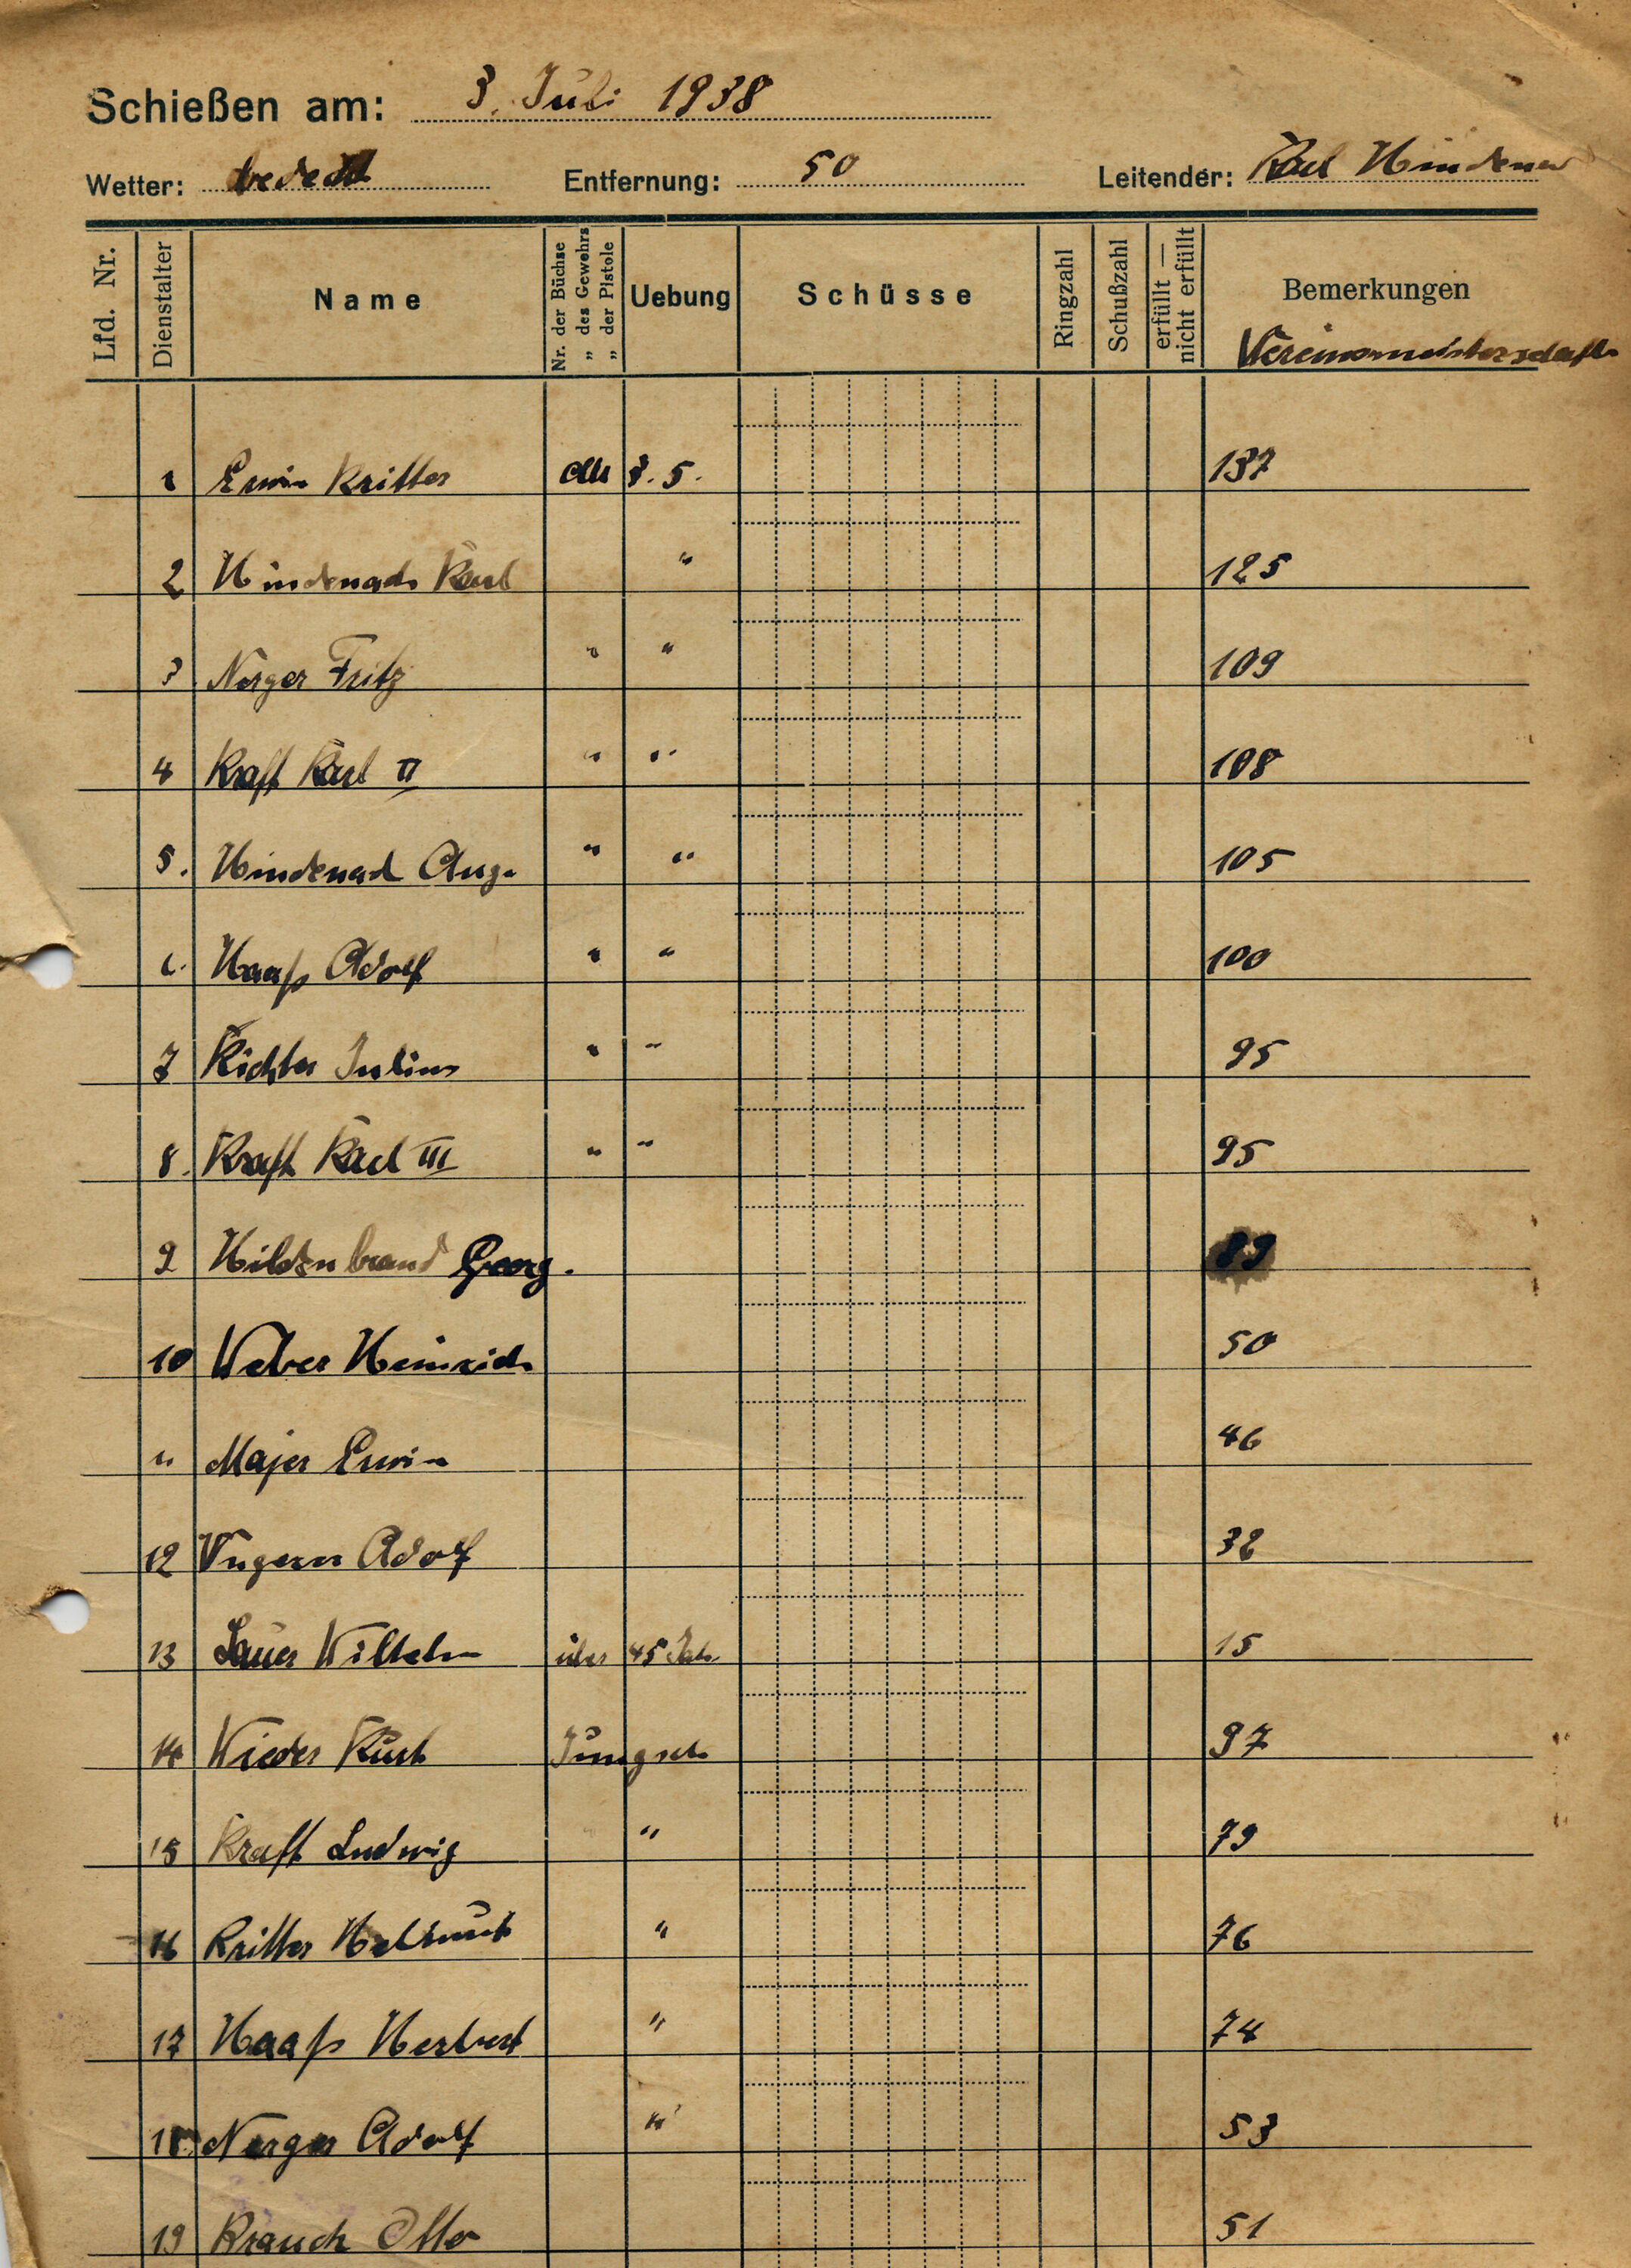 Schießen am: 3. Juli 1938
Wetter: bedeckt Entfernung: 50 Leitender: Karl Hindenach
Lfd. Nr. Dienstalter Name Nr. der Büchse „ des Gewehrs „ der Pistole Uebung Schüsse Ringzahl Schußzahl erfüllt — nicht erfüllt Bemerkungen
Vereinsmeisterschaft
1 Erwin Ritter 3. 5. 137
2 Hindenach Karl " 125
3 Nerger Fritz " " 109
4 Kraft Karl II " " 108
5. Hindenach Aug. " " 105
6. Haaß Adolf " " 100
7 Richter Julius " " 95
8. Kraft Karl III " " 95
9 Hildenbrand Georg. 89
10 Weber Heinrich 50
11 Majer Erwin 46
12 Ungerer Adolf 32
13 Lauer Wilhelm über 45 Jah 15
14 Wieder Kurt Jungsch 97
15 Kraft Ludwig " 79
16 Ritter Helmut " 76
17 Haaß Herbert " 74
18. Nerger Adolf " 53
19 Krauch Otto 51